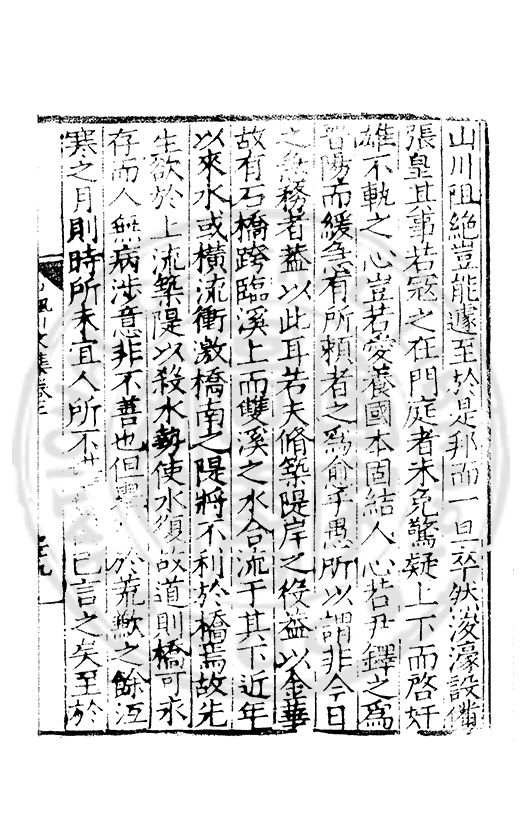 山川阻絶豈能遽至於是邦而一旦卒然浚濠設備
張皇其事若冦之在門庭者未免驚疑上下而啓奸
雄不軌之心豈若愛養國本固結人心若尹鐸之爲
晉陽而緩急有所頼者之爲愈乎愚所以謂非今日
之急務者蓋以此耳若夫脩築隄岸之役益以金華
故有石橋跨臨溪上而雙溪之水合流于其下近年
以來水或橫流衝激橋南之隄將不利於橋焉故先
生欲於上流築隄以殺水勢使水復故道則橋可永
存而人無病渉意非不善也但 於荒歉之餘沍
寒之月則時所未宜人所不 已言之矣至於
川文集卷三